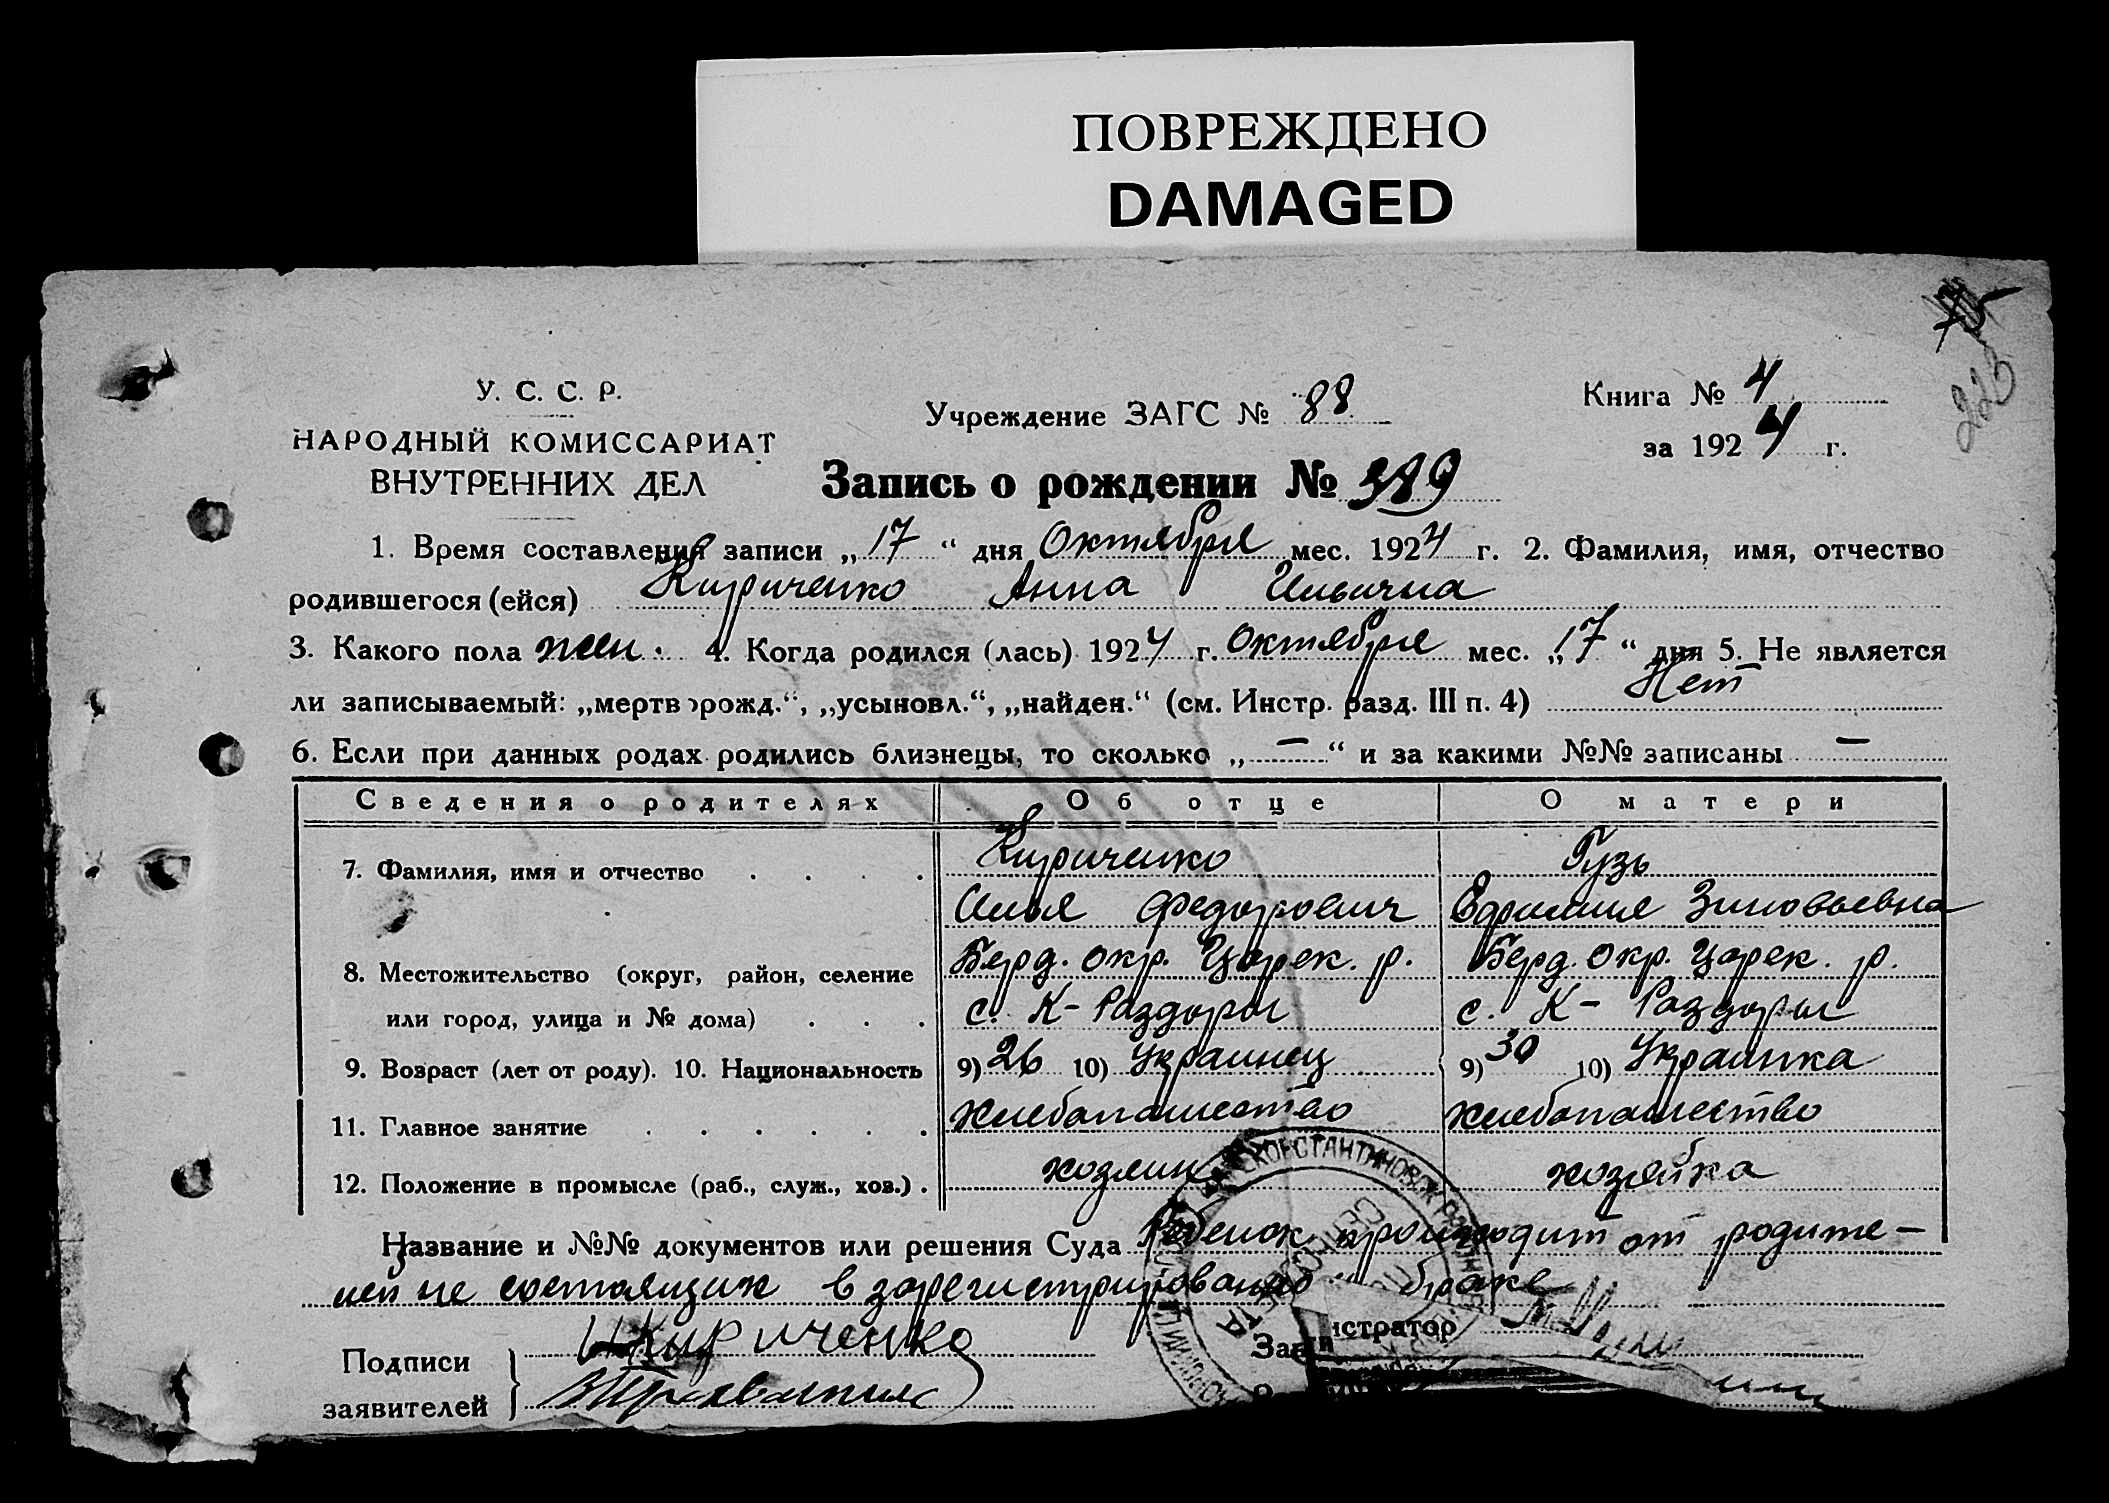 ПОВРЕЖДЕНО
DAMAGED
75
226
У. С. С. Р.
НАРОДНЫЙ КОМИССАРИАТ
ВНУТРЕННИХ ДЕЛ
Учреждение ЗАГС № 88
Книга № 4
за 1924 г.
Запись о рождении № 389
1. Время составления записи „17“ дня Октября мес. 1924 г. 2. Фамилия, имя, отчество
родившегося (ейся) Кириченко Анна Ильична
3. Какого пола жен. 4. Когда родился (лась) 1924 г. Октября мес. „17“ дня 5. Не является
ли записываемый: „мертворожд.“, „усыновл.“, „найден.“ (см. Инстр. разд. III п. 4) Нет
6. Если при данных родах родились близнецы, то сколько „—“ и за какими №№ записаны —
Сведения о родителях Об отце О матери
7. Фамилия, имя и отчество Кириченко Гузь
Илья Федорович Ефимия Зиновьевна
8. Местожительство (округ, район, селение Берд. окр. Царек. р. Берд. окр. Царек. р.
или город, улица и № дома) с. К-Раздоры с. К-Раздоры
9. Возраст (лет от роду). 10. Национальность 9) 26 10) Украинец 9) 30 10) Украинка
11. Главное занятие Хлебопашество Хлебопашество
12. Положение в промысле (раб., служ., хоз.). хозяин хозяйка
Название и №№ документов или решения Суда Ребенок происходит от родите-
лей не состоящих в зарегистрированом браке
Подписи
заявителей
И Кириченко
Зав
истратор